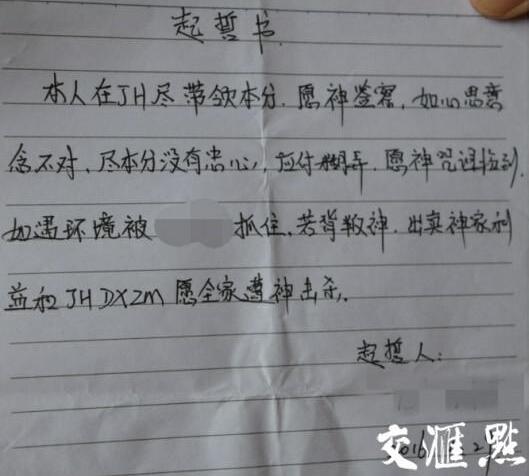 起誓书
本人在JH尽带领本分.愿神鉴察,如心思意
念不对,尽本分没有忠心,应付糊弄.愿神咒诅临到.
如遇环境被 抓住,若背叛神.出卖神家利
益和JH DXZM 愿全家遭神击杀.
起誓人:
2016 2
交汇點